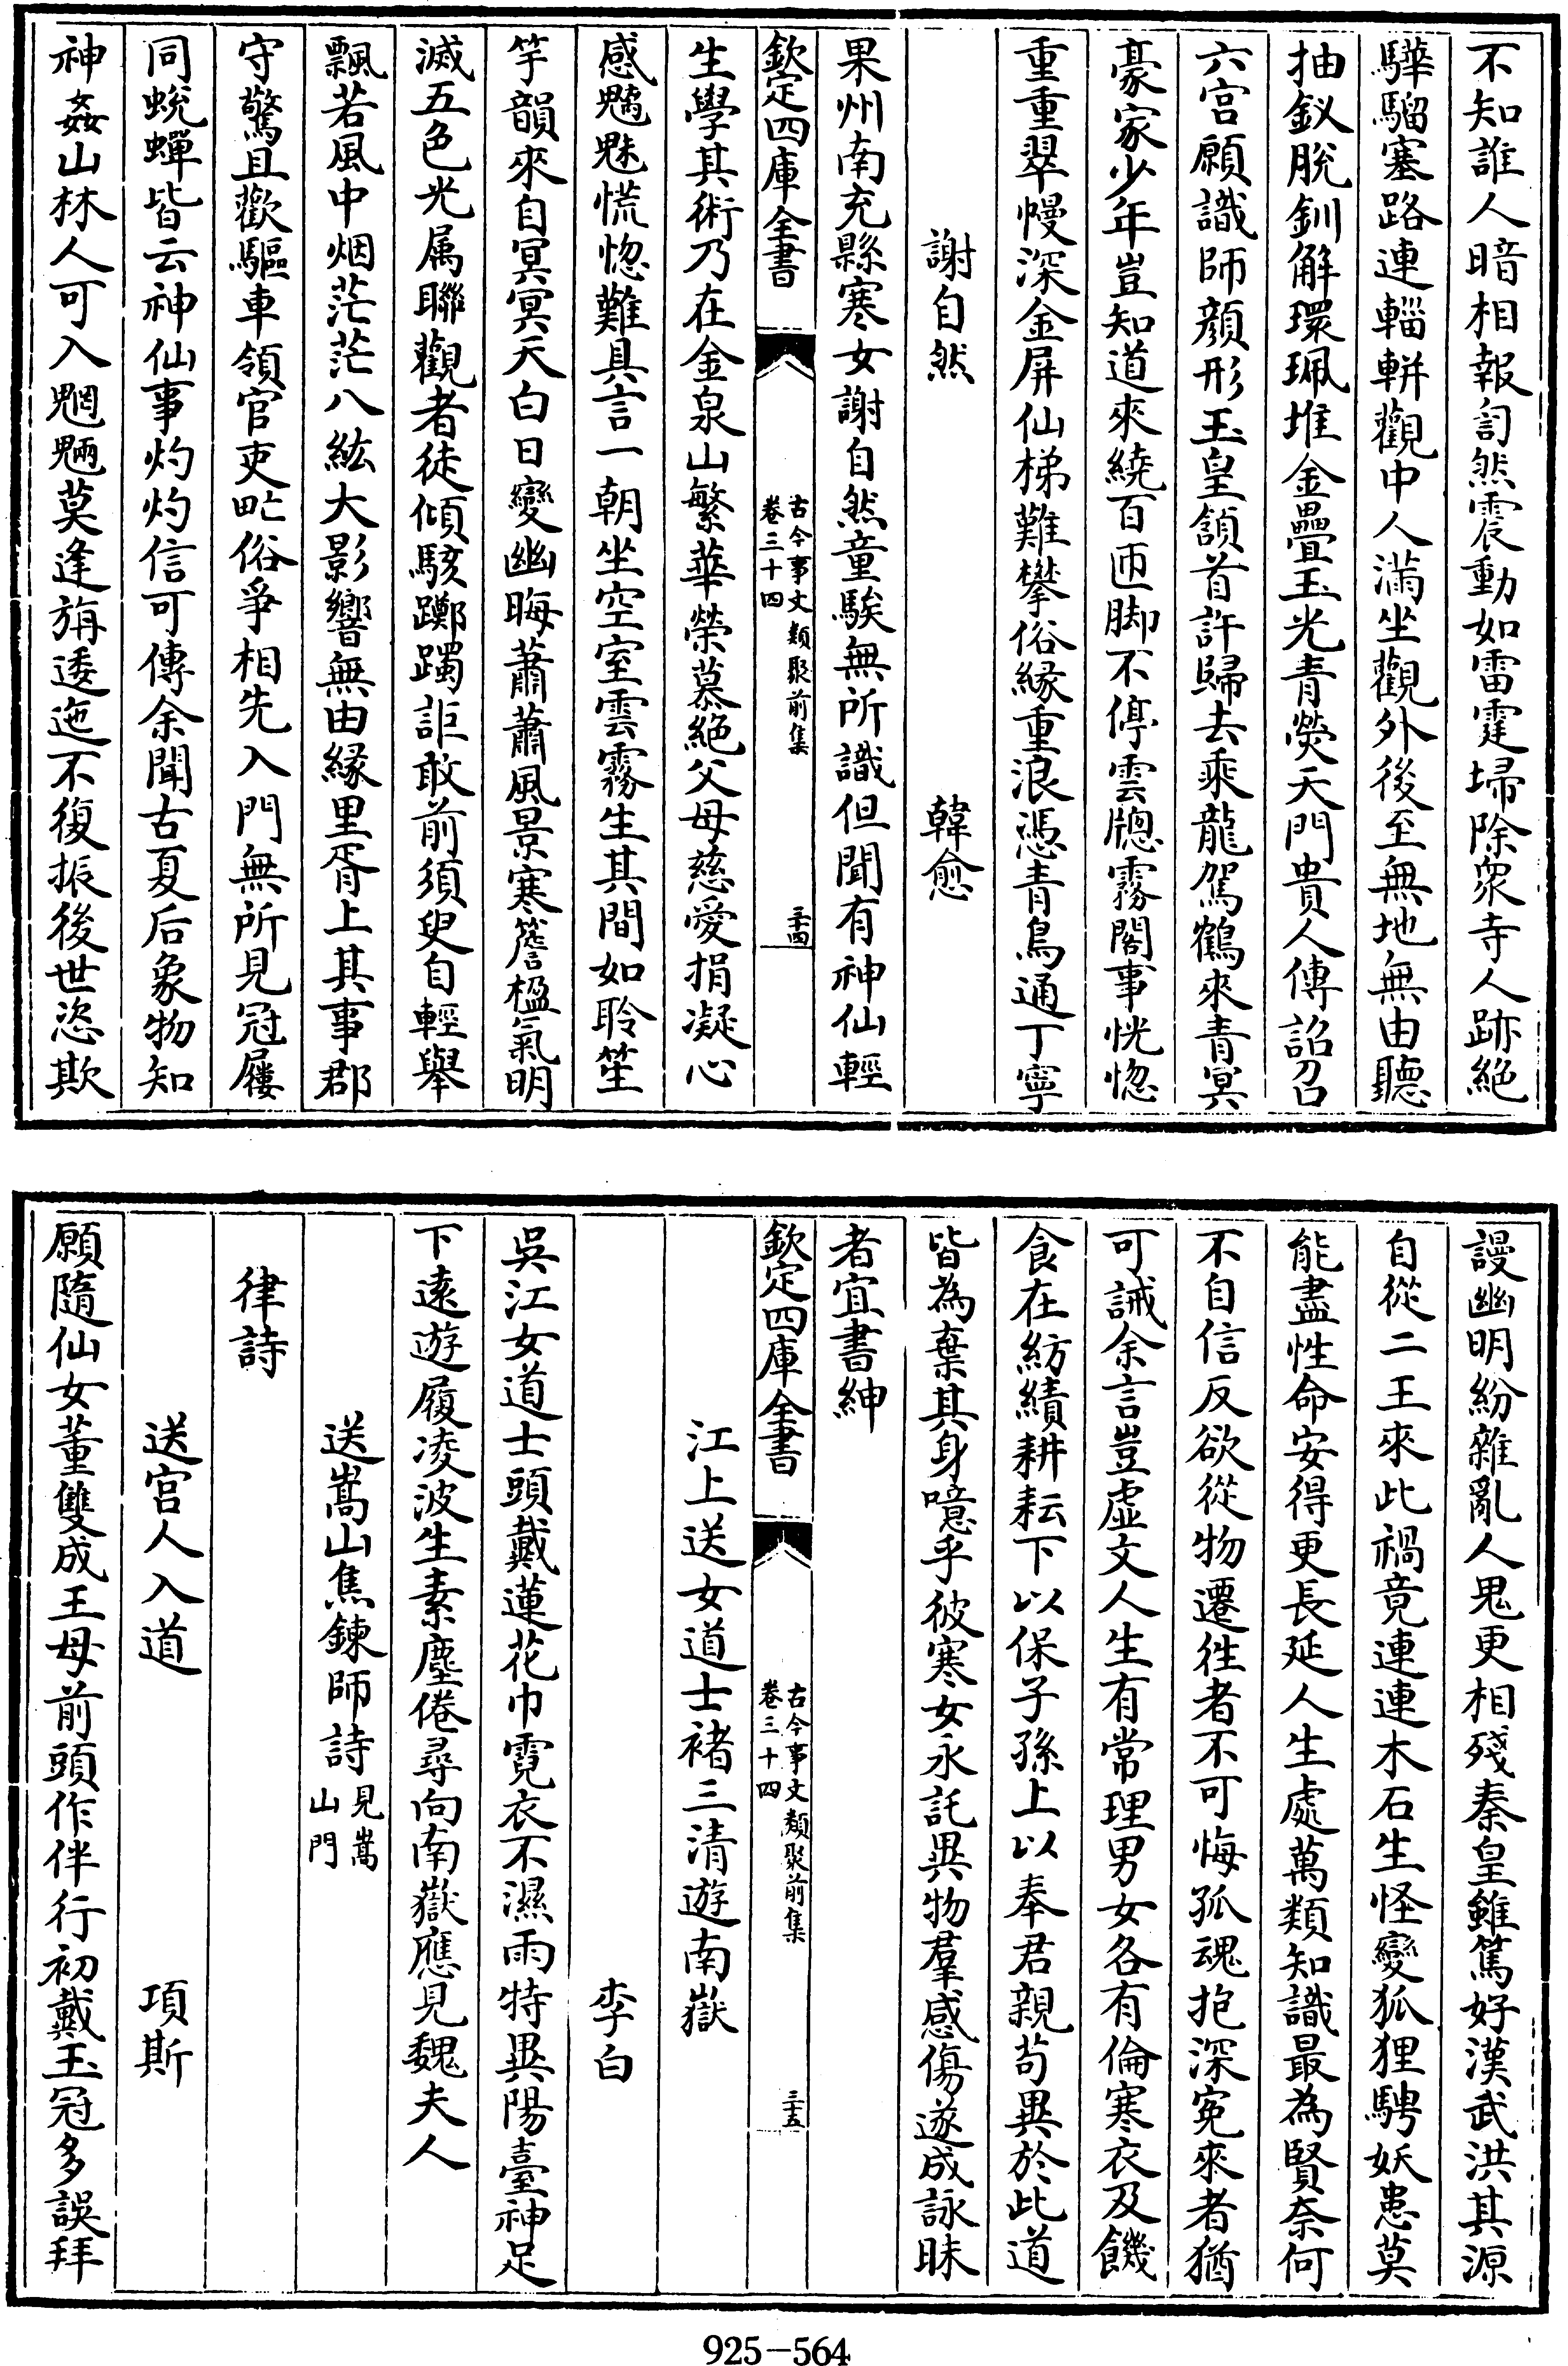 不知誰人暗相報訇然震動如雷霆埽除衆寺人跡絕
驊騮塞路連輜軿觀中人滿坐觀外後至無地無由聽
抽釵脫釧解環珮堆金疊玉光青熒天門貴人傳詔召
六宫願識師顏形玉皇頷首許歸去乘龍駕鶴來青冥
豪家少年豈知道來繞百匝脚不停雲牕霧閣事恍惚
重重翠幔深金屏仙梯難攀俗緣重浪憑青鳥通丁寧
謝自然　韓愈
果州南充縣寒女謝自然童騃無所識但聞有神仙輕
欽定四庫全書　古今事文類聚前集　卷三十四　三十四
生學其術乃在金泉山繁華榮慕絕父母慈愛捐凝心
感魑魅慌惚難具言一朝坐空室雲霧生其間如聆笙
竽韻來自冥冥天白日變幽晦蕭蕭風景寒簷楹氣明
滅五色光属聯觀者徒傾駭躑躅詎敢前須臾自輕舉
飄若風中烟茫茫八紘大影響無由緣里胥上其事郡
守驚且歡驅車領官吏甿俗爭相先入門無所見冠屨
同蛻蟬皆云神仙事灼灼信可傳余聞古夏后象物知
神姦山林人可入魍魎莫逢旃逶迤不復振後世恣欺
謾幽明紛雜亂人鬼更相殘秦皇雖篤好漢武洪其源
自從二王來此禍竟連連木石生怪變狐狸騁妖患莫
能盡性命安得更長延人生處萬類知識最為賢奈何
不自信反欲從物遷徃者不可悔孤魂抱深寃來者猶
可誡余言豈虛文人生有常理男女各有倫寒衣及饑
食在紡績耕耘下以保子孫上以奉君親苟異於此道
皆為棄其身噫乎彼寒女永託異物羣感傷遂成詠昧
者宜書紳
欽定四庫全書　古今事文類聚前集　卷三十四　三十五
江上送女道士褚三清遊南嶽
李白
吳江女道士頭戴蓮花巾霓衣不濕雨特異陽臺神足
下遠遊履凌波生素塵倦尋向南嶽應見魏夫人
送嵩山焦鍊師詩見嵩山門
律詩
送宫人入道　項斯
願隨仙女董雙成王母前頭作伴行初戴玉冠多誤拜
925－564